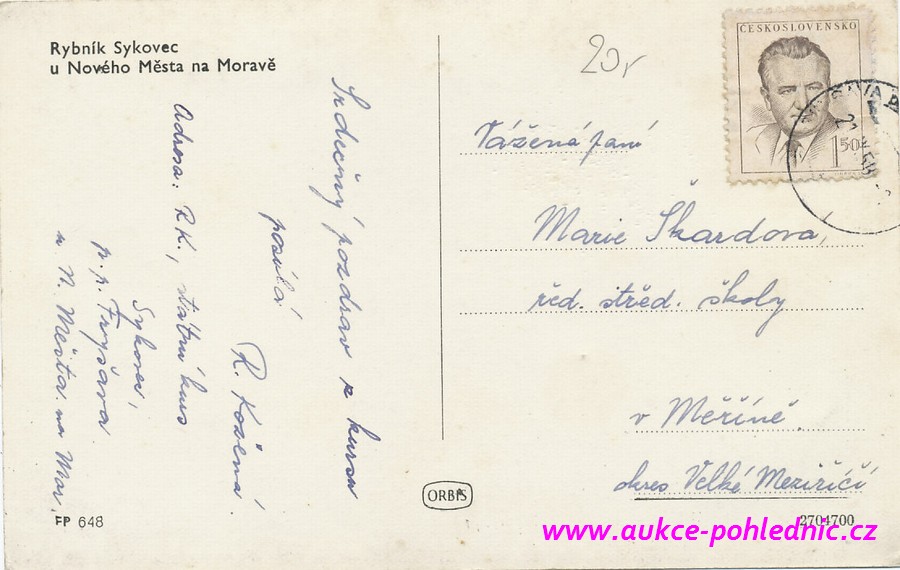 Rybník Sykovec
u Nového Města na Moravě
Srdečný pozdrav z kursu
posílá
R. Kožená.
Adresa: R. K., státní kurs
Sykovec,
p. p. Fryšava
u N. Města na Mor.
FP 648
ORBIS
20,-
ČESKOSLOVENSKO
1 50
Vážená paní
Marie Škardová,
řed. střed. školy
v Měříně
okres Velké Meziříčí
2704700
www.aukce-pohlednic.cz